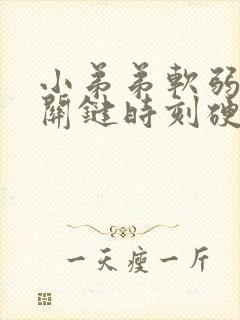 小弟弟軟弱
關鍵時刻硬
一天瘦一斤